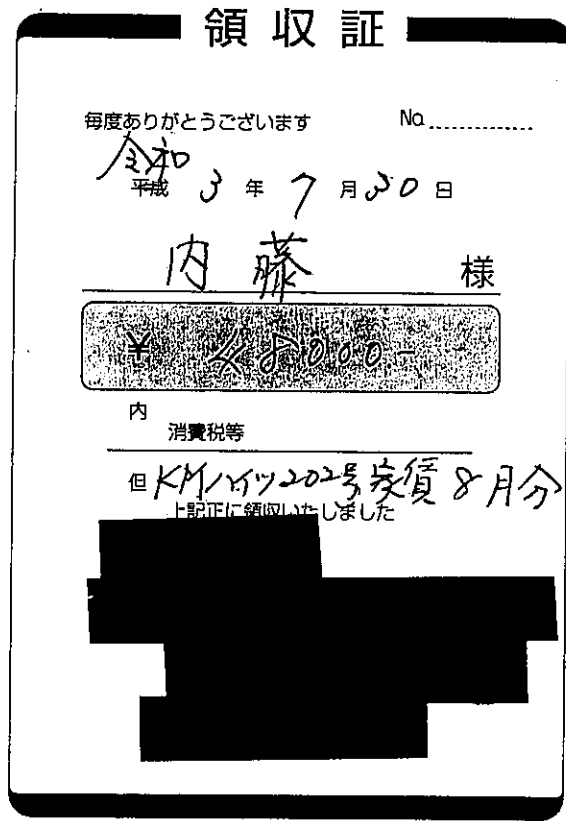 領収証
毎度ありがとうございます No.
令和
平成 3 年 7 月 30 日
内藤 様
¥
内
消費税等
但 KMハイツ202号家賃8月分
上記正に領収いたしました